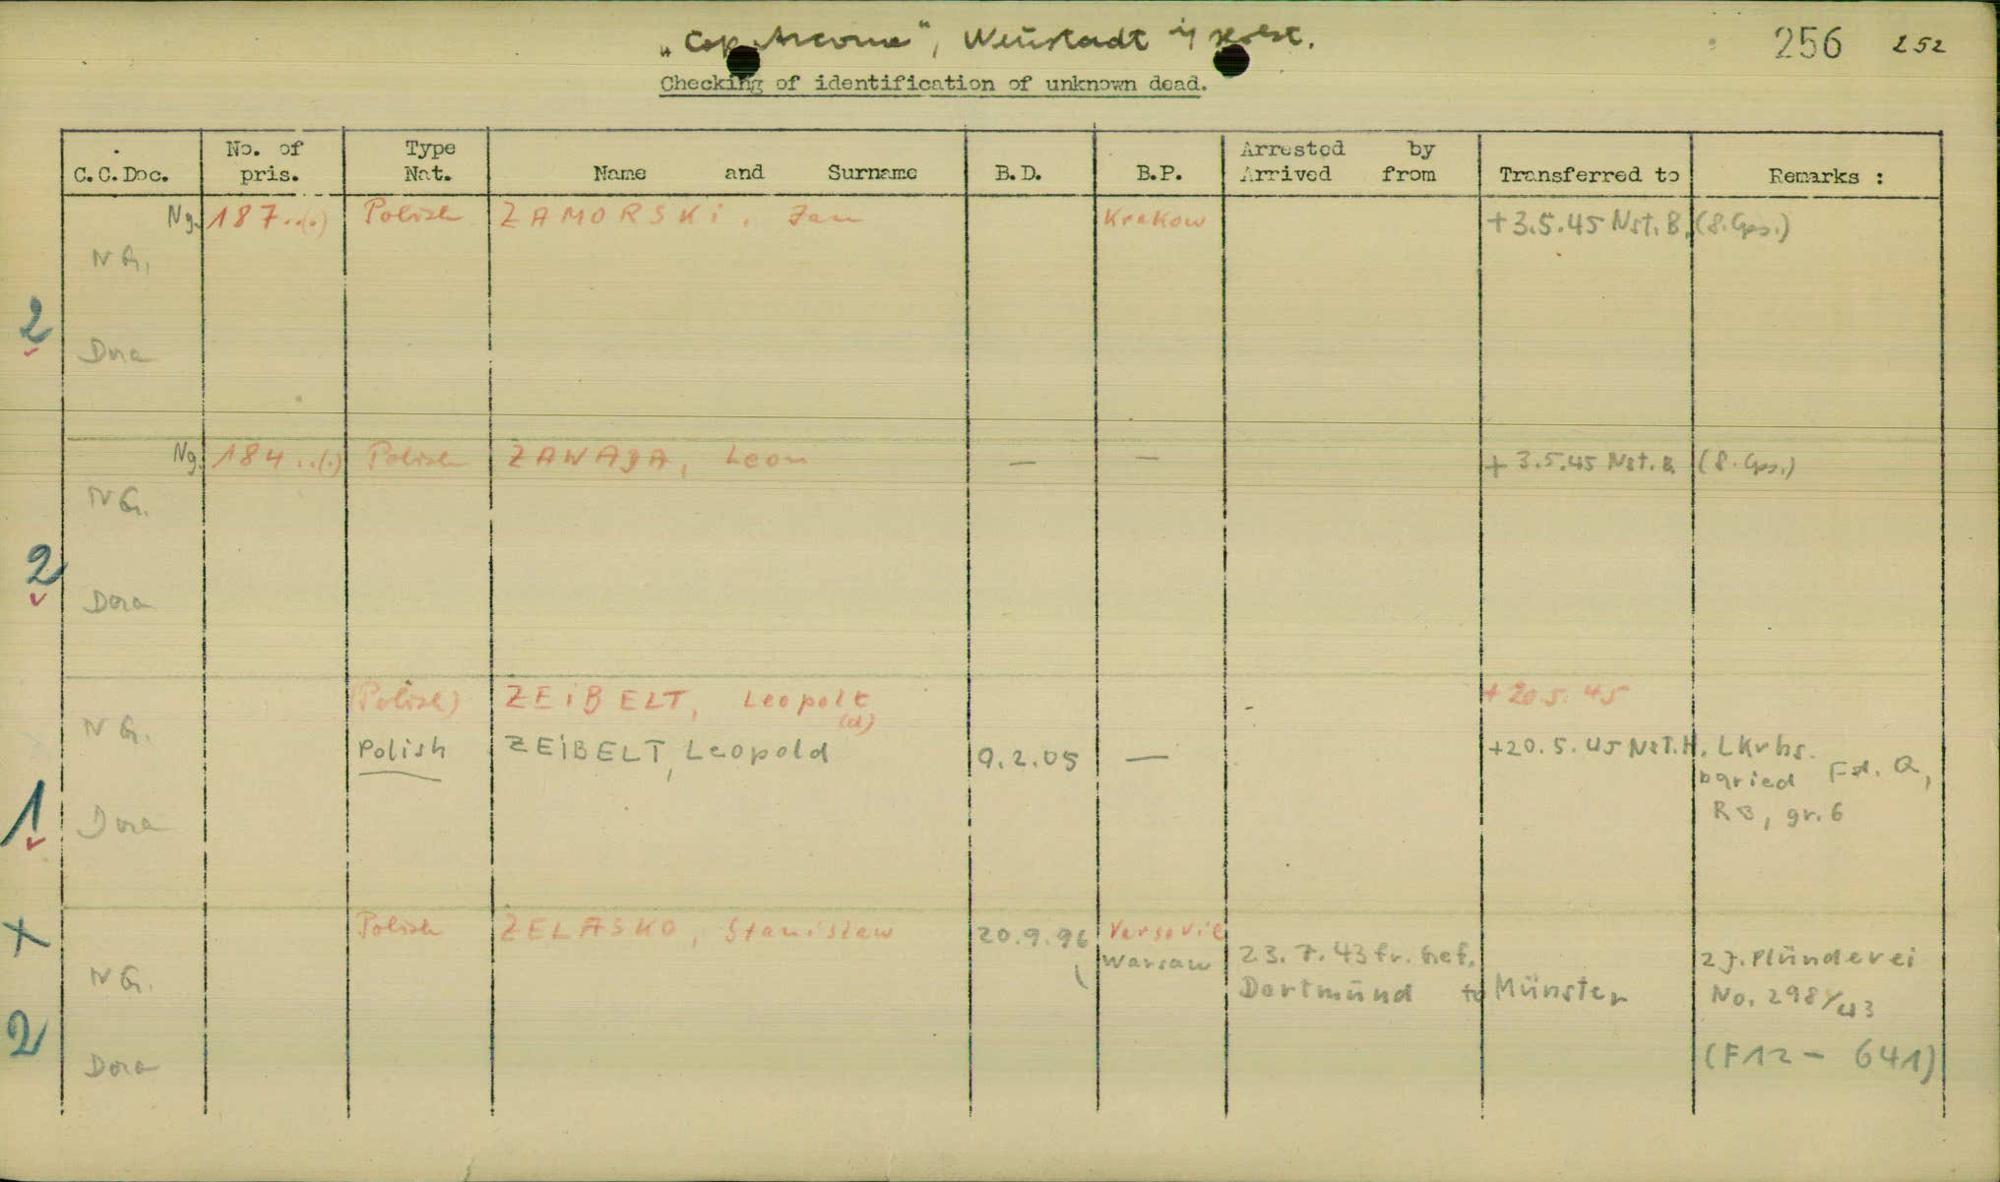 „Cap Arcona", Neustadt i/Holst.
256 252
Checking of identification of unknown dead.
C.C.Doc. No. of pris. Type Nat. Name and Surname B.D. B.P. Arrested by Arrived from Transferred to Remarks :
Ng. 187..(.) Polish ZAMORSKi, Jan Krakow +3.5.45 Nst.B. (8.Gps.)
NG.
2
Dora
Ng. 184..(.) Polish ZAWAJA, Leon — — +3.5.45 Nst.B. (8.Gps.)
NG.
2
Dora
(Polish) ZEiBELT, Leopolt +20.5.45
(d)
NG.
Polish ZEiBELT, Leopold 9.2.05 — +20.5.45 Nst.H. LKrhs.
buried Fd. Q,
R3, gr.6
1
Dora
Polish ZELASKO, Stanislaw 20.9.96 Varsovie
+
Warsaw 23.7.43 fr. Gef. 2J. Plünderei
NG.
Dortmund to Münster No. 298/43
2
(F12 - 641)
Dora